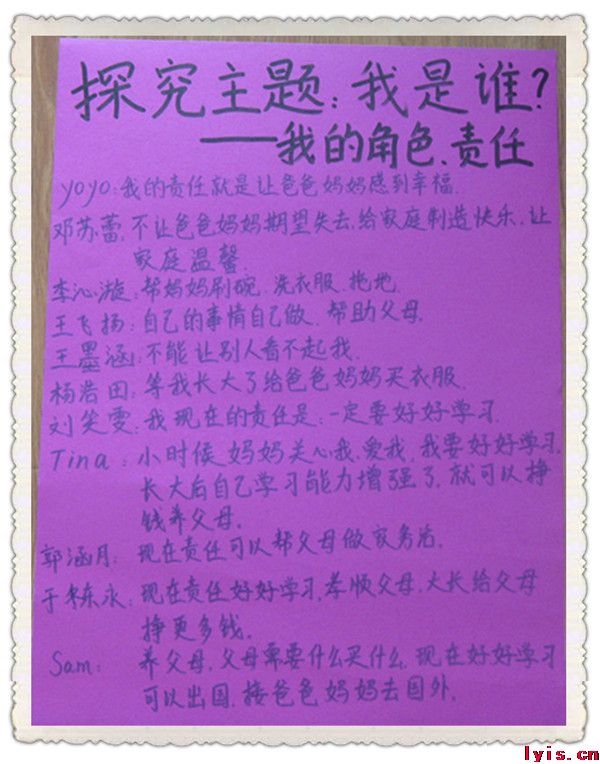 探究主题:我是谁?
——我的角色、责任
yoyo:我的责任就是让爸爸妈妈感到幸福.
邓苏蕾:不让爸爸妈妈期望失去,给家庭制造快乐、让
家庭温馨.
李沁漩:帮妈妈刷碗、洗衣服、拖地.
王飞扬:自己的事情自己做、帮助父母.
王墨涵:不能让别人看不起我.
杨浩田:等我长大了给爸爸妈妈买衣服.
刘笑雯:我现在的责任是:一定要好好学习.
Tina:小时候妈妈关心我、爱我,我要好好学习,
长大后自己学习能力增强了,就可以挣
钱养父母。
郭涵月:现在责任可以帮父母做家务活.
于栋永:现在责任好好学习,孝顺父母,大长给父母
挣更多钱。
Sam:养父母,父母需要什么买什么,现在好好学习
可以出国,接爸爸妈妈去国外.
lyis.cn